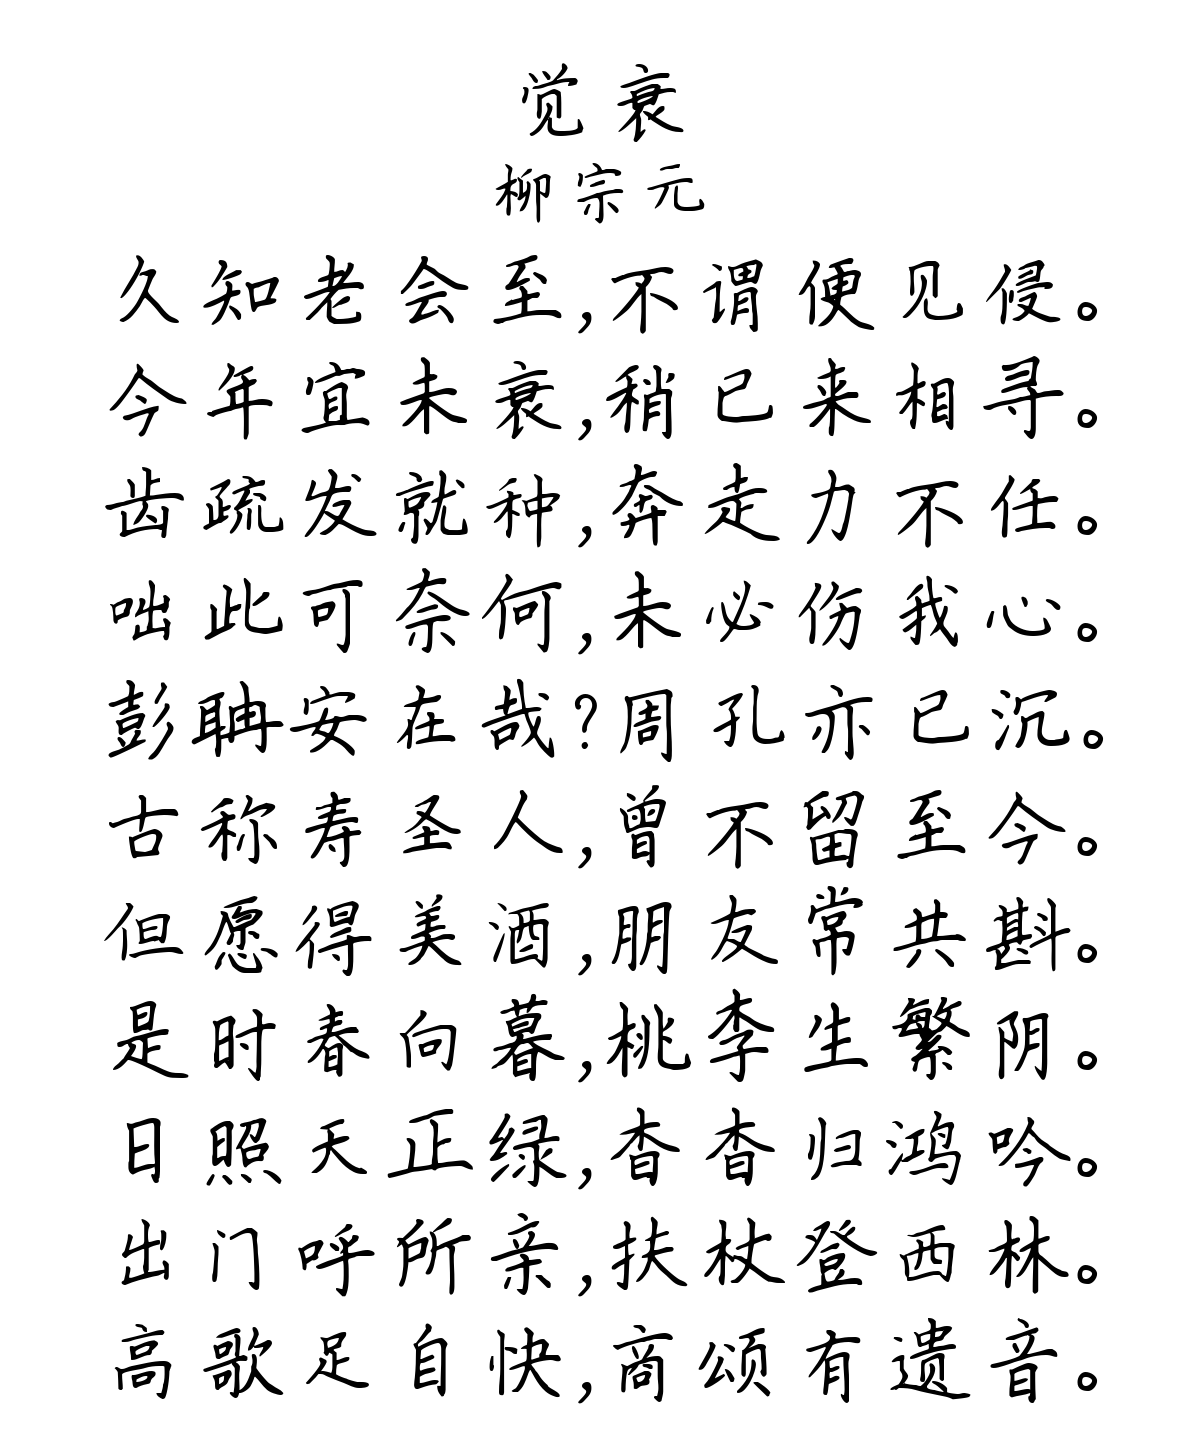 觉衰
柳宗元
久知老会至,不谓便见侵。
今年宜未衰,稍已来相寻。
齿疏发就种,奔走力不任。
咄此可奈何,未必伤我心。
彭聃安在哉?周孔亦已沉。
古称寿圣人,曾不留至今。
但愿得美酒,朋友常共斟。
是时春向暮,桃李生繁阴。
日照天正绿,杳杳归鸿吟。
出门呼所亲,扶杖登西林。
高歌足自快,商颂有遗音。